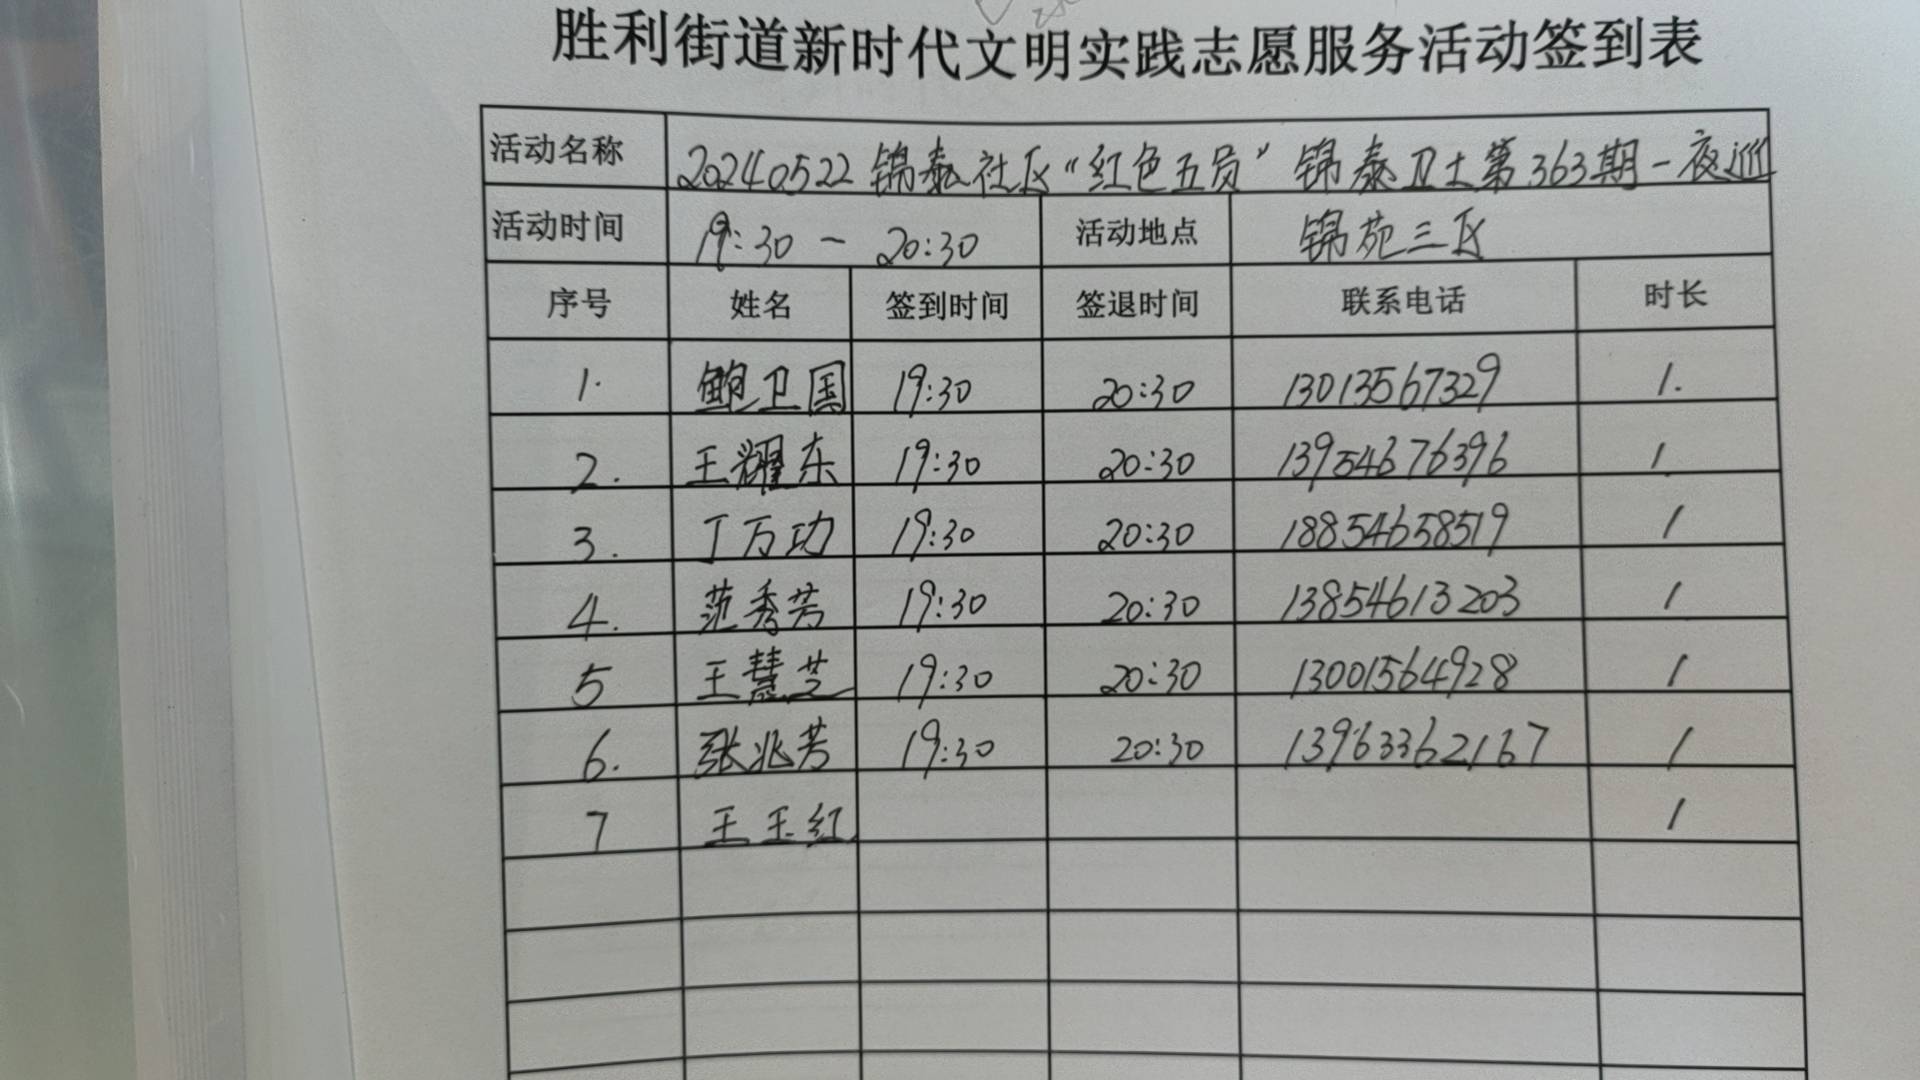 胜利街道新时代文明实践志愿服务活动签到表
活动名称 20240522锦泰社区“红色五员”锦泰卫士第363期-夜巡
活动时间 19:30-20:30 活动地点 锦苑三区
序号 姓名 签到时间 签退时间 联系电话 时长
1. 鲍卫国 19:30 20:30 13013567329 1.
2. 王耀东 19:30 20:30 13954676396 1
3. 丁万功 19:30 20:30 18854658519 1
4. 范秀芳 19:30 20:30 13854613203 1
5 王慧芝 19:30 20:30 13001564928 1
6. 张兆芳 19:30 20:30 13963362167 1
7 王玉红 1